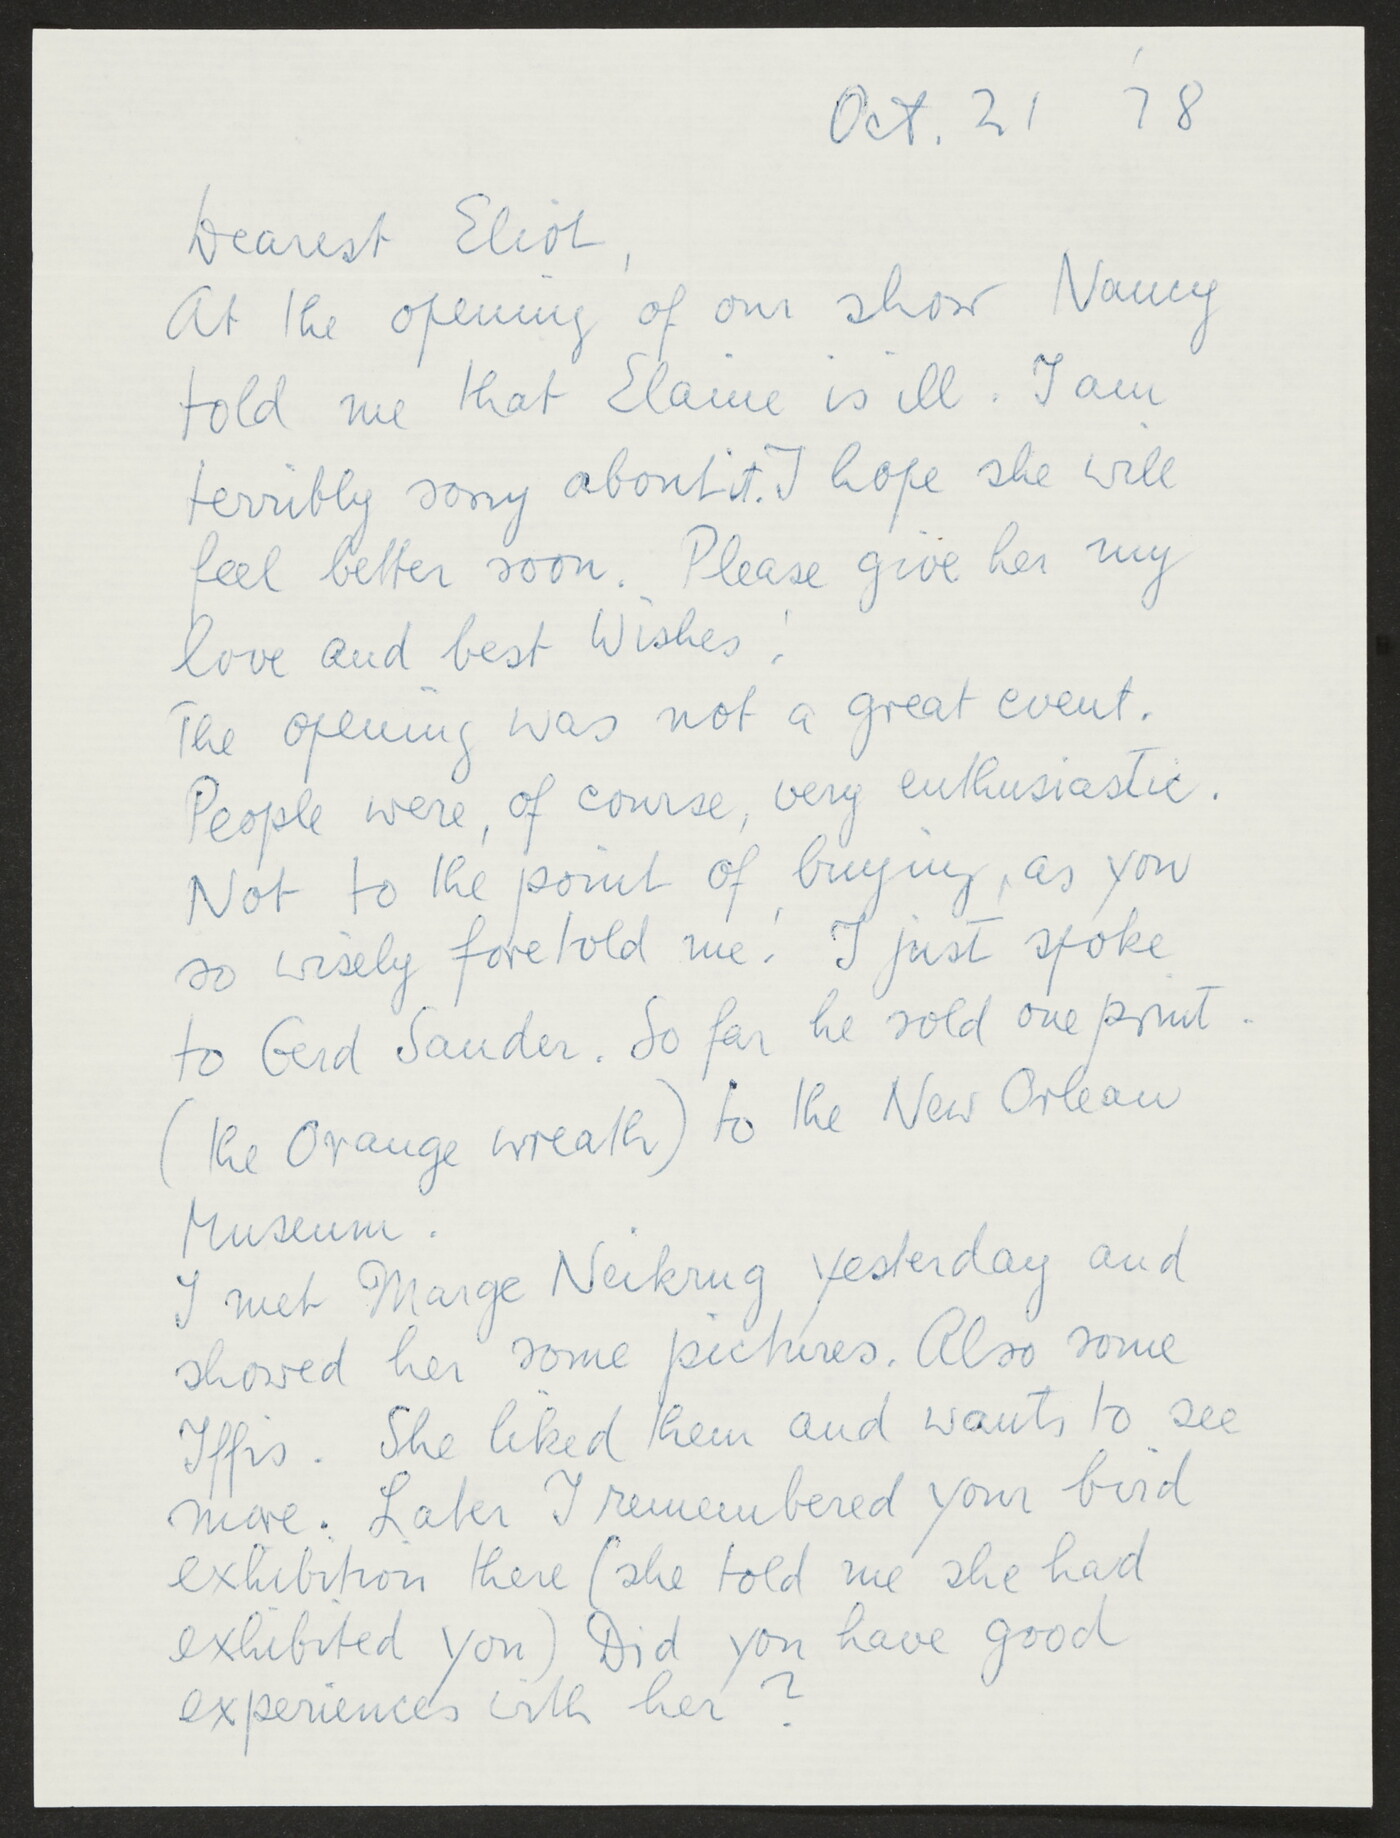 Oct. 21 '78
Dearest Eliot,
At the opening of our show Nancy
told me that Elaine is ill. I am
terribly sorry about it. I hope she will
feel better soon. Please give her my
love and best Wishes!
The opening was not a great event.
People were, of course, very enthusiastic.
Not to the point of buying, as you
so wisely foretold me! I just spoke
to Gerd Sander. So far he sold one print.
(the Orange wreath) to the New Orlean
Museum.
I met Marge Neikrug yesterday and
showed her some pictures. Also some
Iffis. She liked them and wants to see
more. Later I remembered your bird
exhibition there (she told me she had
exhibited you) Did you have good
experiences with her?